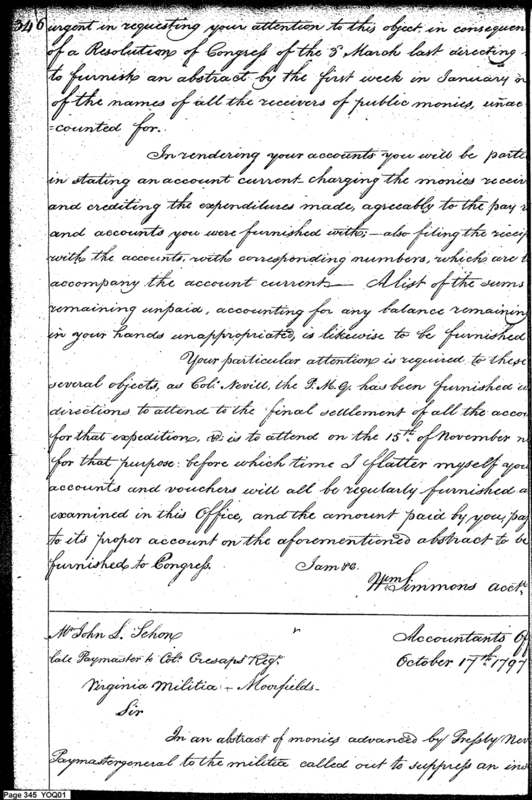 346 urgent in requesting your attention to this object. in consequen
of a Resolution of Congress of the 3d March last directing
to furnish an abstract by the first week in January
of the names of all the receivers of public monies, unac
=counted for.
In rendering your accounts you will be parti
in stating an account current charging the monies receiv
and crediting the expenditures made, agreeably to the pay
and accounts you were furnished with;— also filing the recei
with the accounts, with corresponding numbers, which are t
accompany the account current— A list of the sums
remaining unpaid, accounting for any balance remaining
in your hands unappropriated, is likewise to be furnished
Your particular attention is required to these
several objects, as Colo. Nevill, the P.M.G. has been furnished w
directions to attend to the final settlement of all the accou
for that expedition, & is to attend on the 15th. of November n
for that purpose: before which time I flatter myself you
accounts and vouchers will all be regularly furnished a
examined in this Office, and the amount paid by you, pas
to its proper account on the aforementioned abstract to be
furnished to Congress. I am &c.
Wm. Simmons acctt.
Mr John L. Sehon Accountants Of
late Paymaster to Colo. Cresaps Regt. October 17th. 1797
Virginia Militia - Moorfields-
Sir
In an abstract of monies advanced by Presby Nev
Paymastergeneral to the militia called out to suppress an ins
Page 345 YOQ01